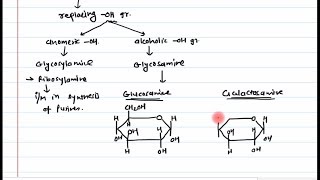 replacing -OH gr.
anomeric -OH.
alcoholic -OH gr.
Glycosylamine
Glycosamine
→ Ribosylamine
I/M in synthesis
of purines.
Glucosamine
Galactosamine
CH₂OH
O
O
H
H
H
OH
OH
OH
OH
OH